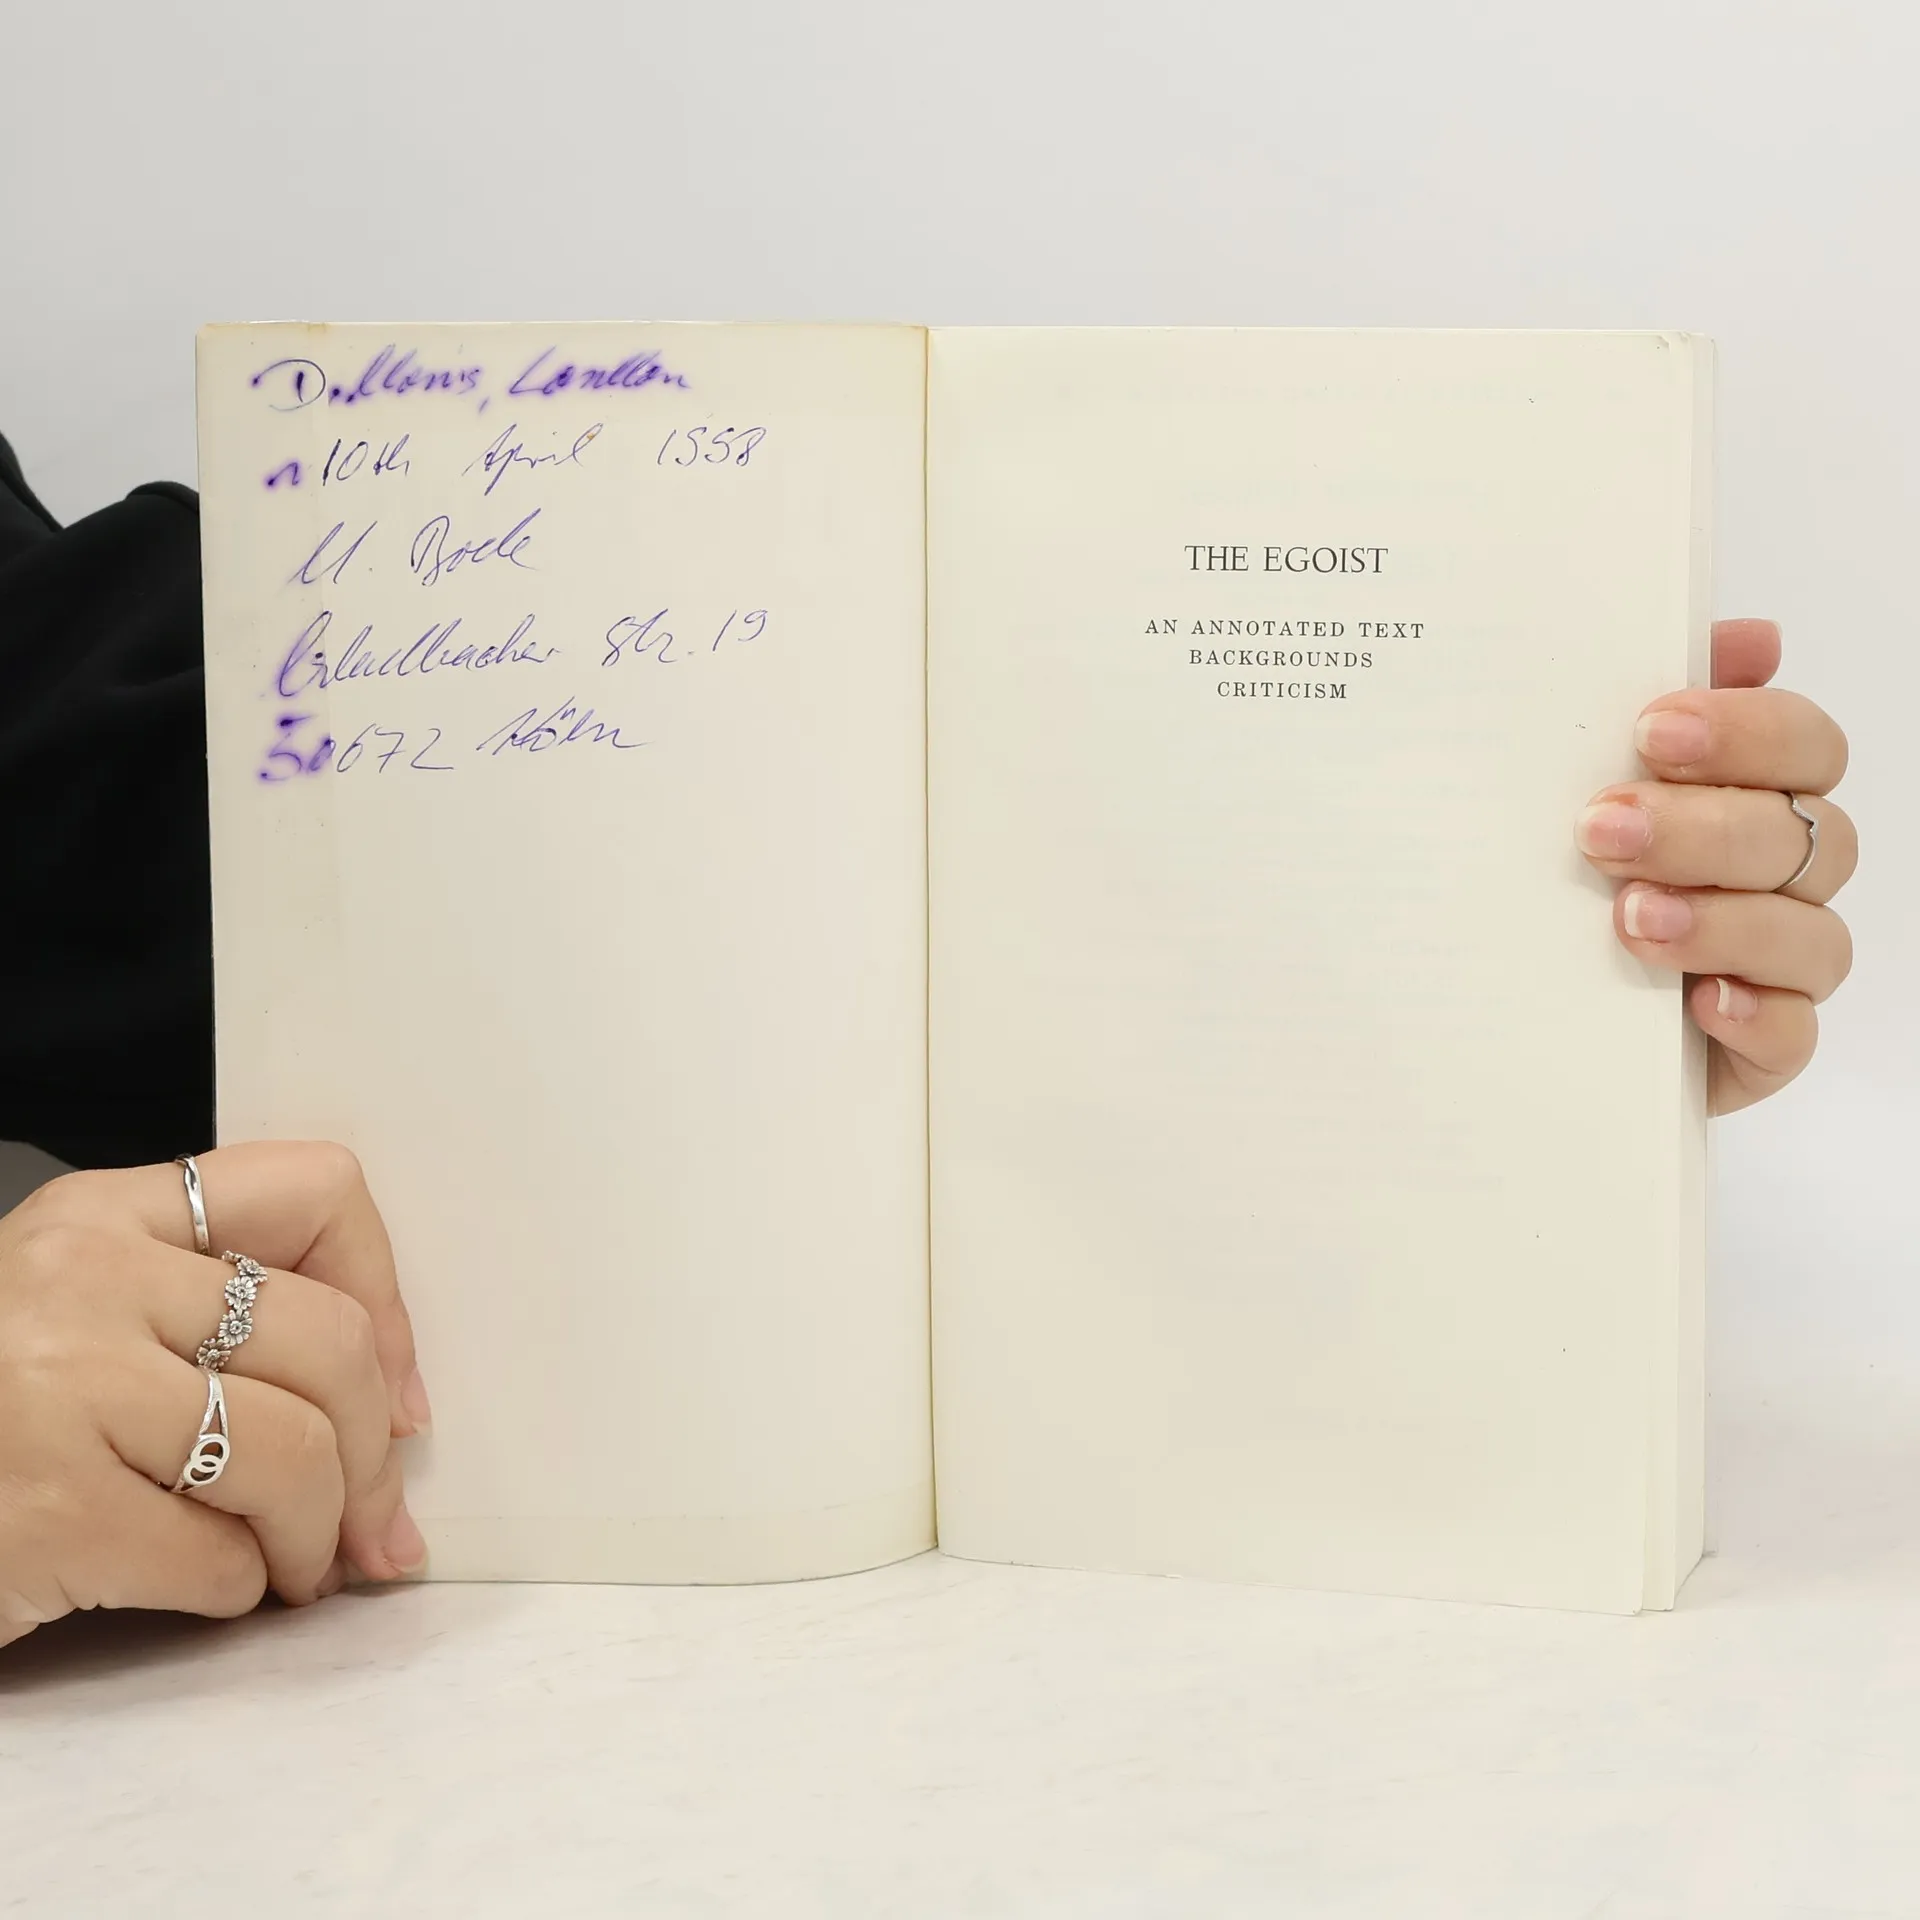 Dillons, London
10th April 1998
Gladbacher Str. 19
50672 Köln
THE EGOIST
AN ANNOTATED TEXT
BACKGROUNDS
CRITICISM